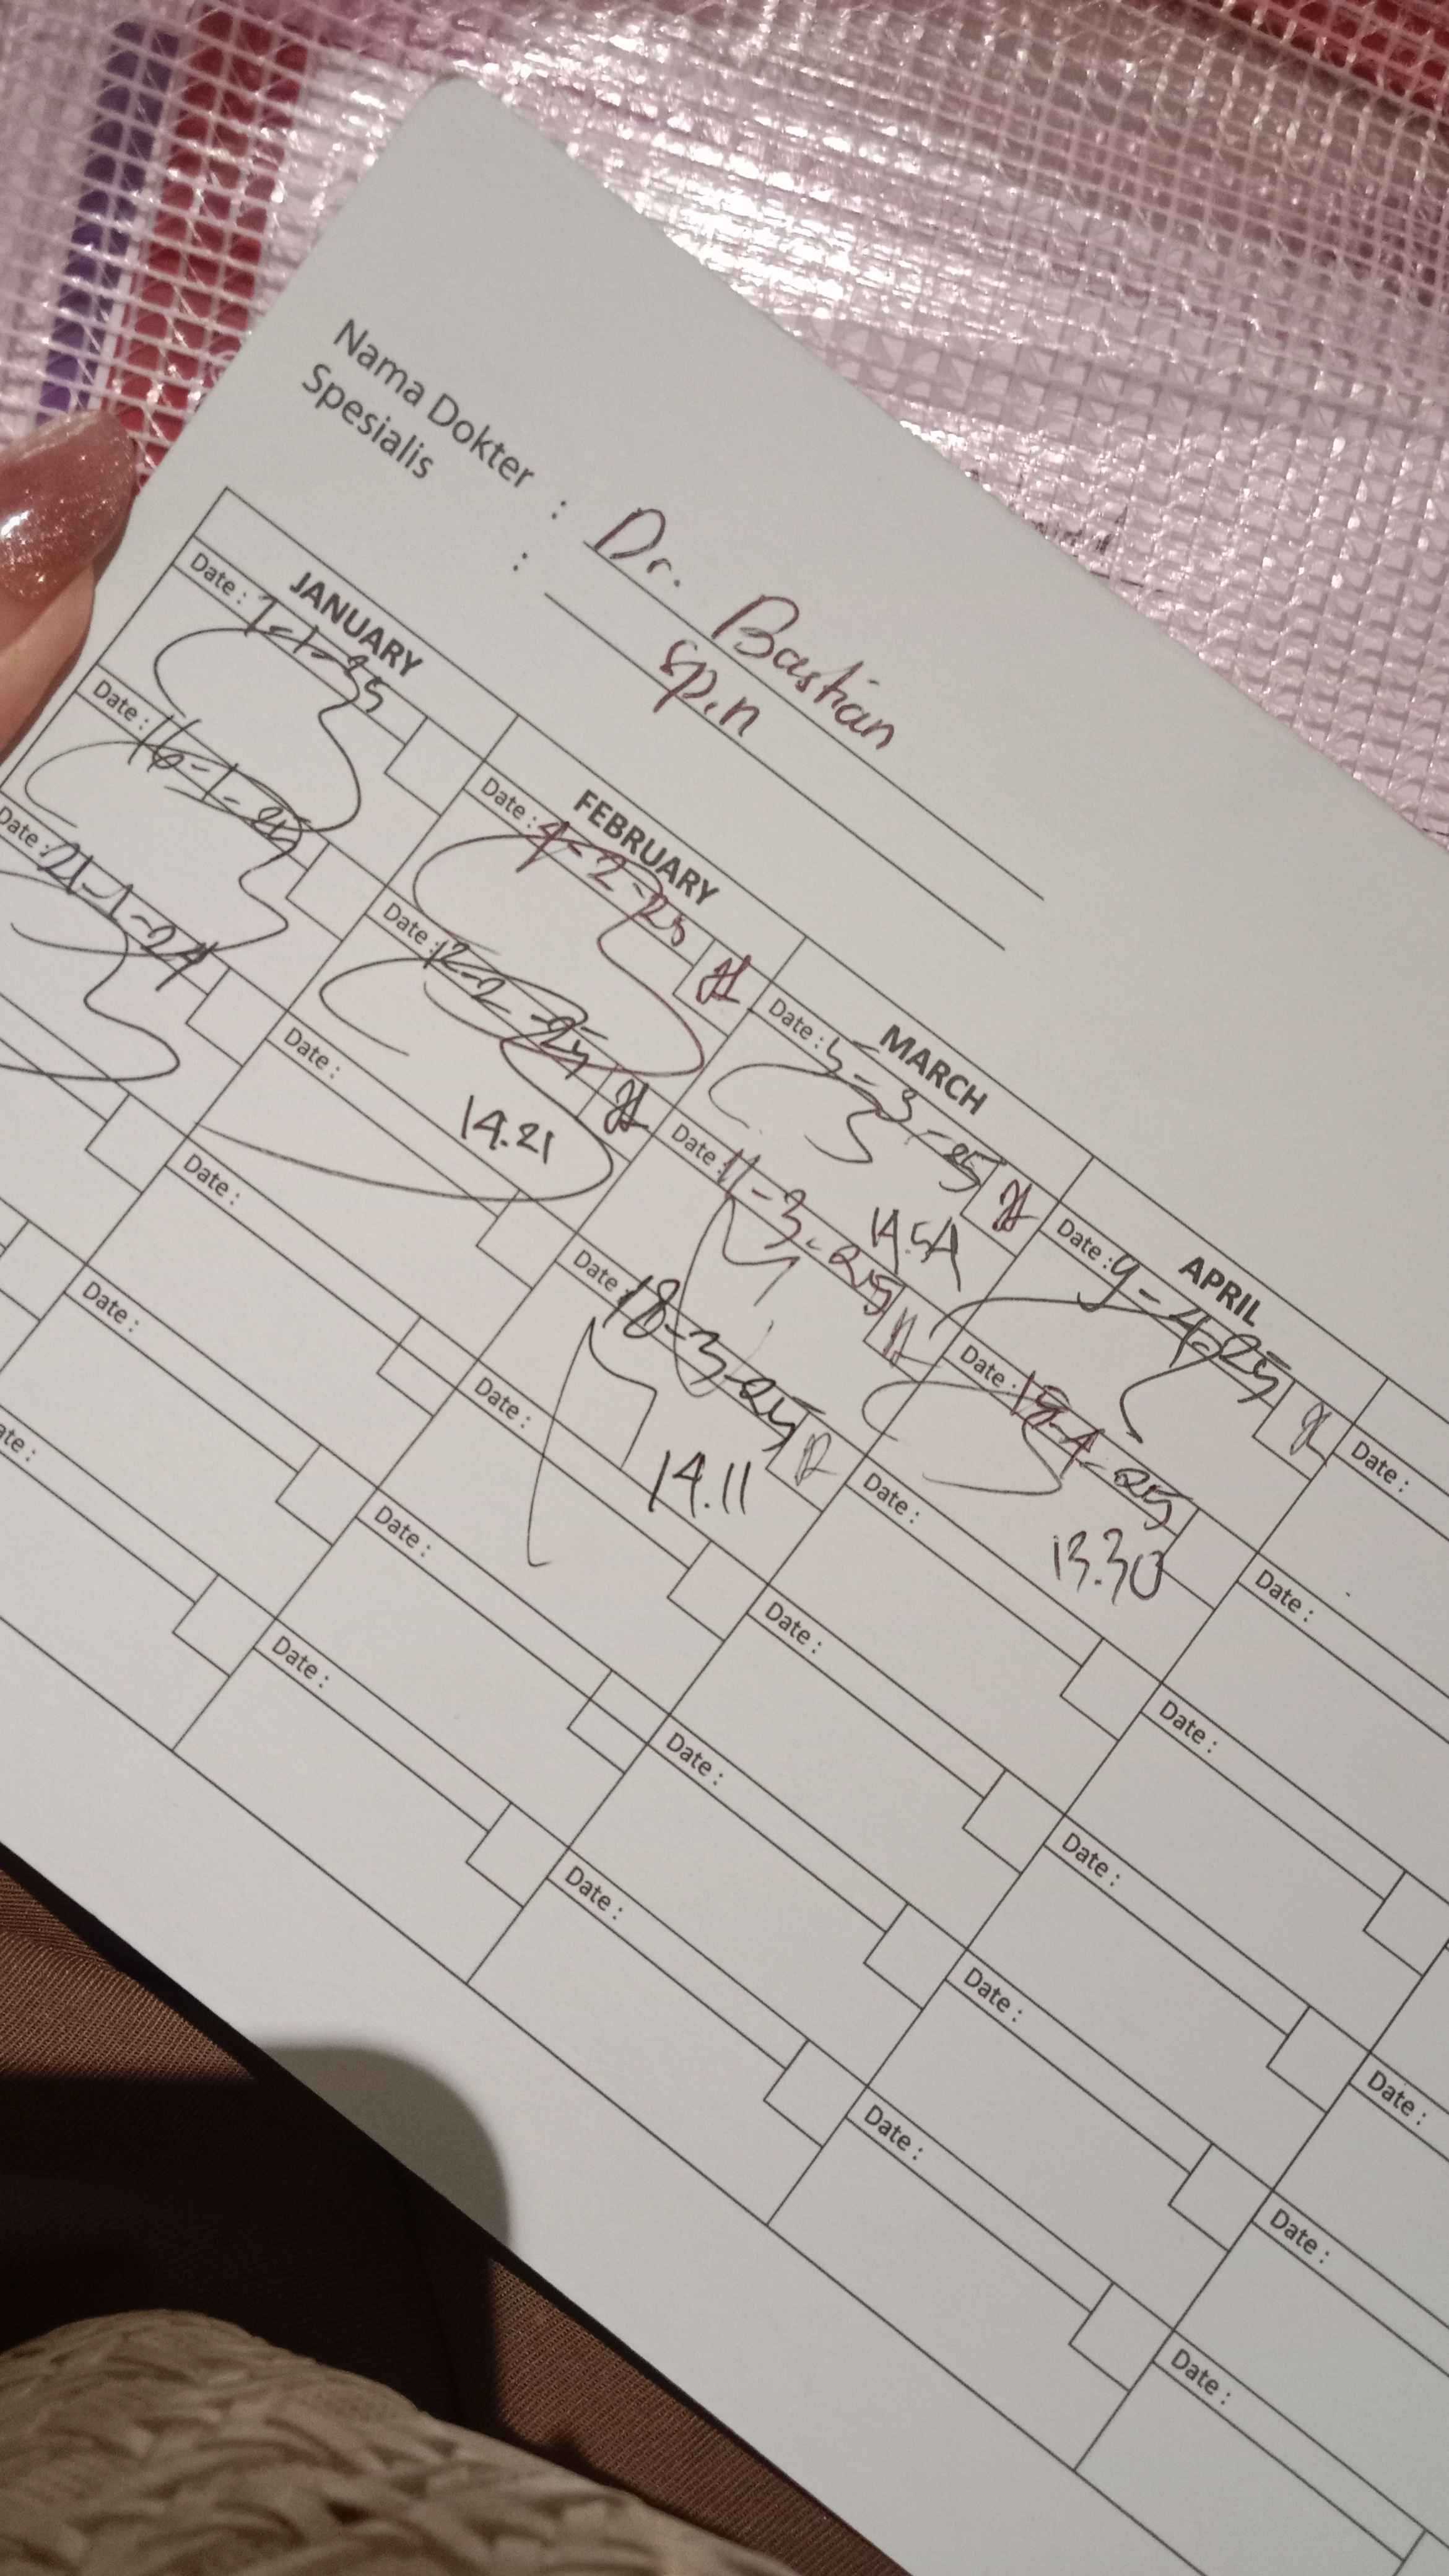 Nama Dokter : Dr. Bastian
Spesialis : sp.n
JANUARY
Date : 7-1-25
Date : 16-1-25
Date : 21-1-24
FEBRUARY
Date : 4-2-25
Date : 12-2-25
14.21
Date :
Date :
Date :
Date :
MARCH
Date : 5-3-25
14.54
Date : 11-3-25
Date : 18-3-25
14.11
Date :
Date :
Date :
APRIL
Date : 9-4-25
Date : 15-4-25
13.30
Date :
Date :
Date :
Date :
Date :
Date :
Date :
Date :
Date :
Date :
Date :
Date :